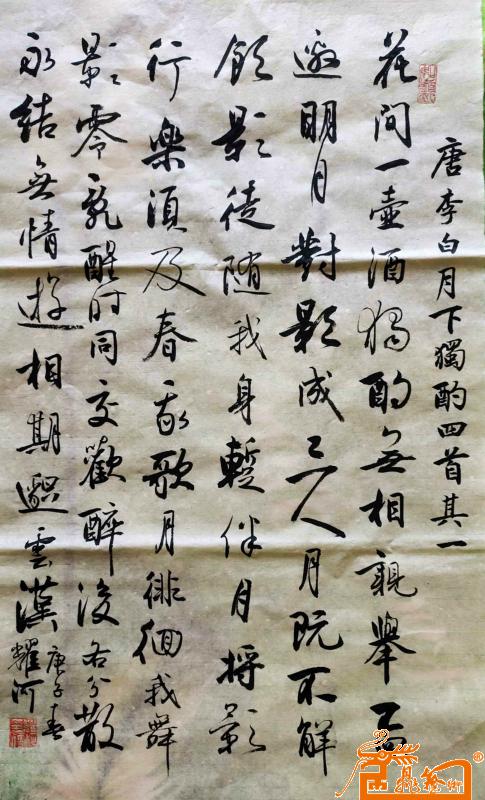 唐李白月下獨酌四首其一
花间一壺酒獨酌無相親舉盃
邀明月對影成三人月既不解
飲影徒随我身暫伴月将影
行樂須及春我歌月徘徊我舞
影零亂醒时同交歡醉後各分散
永結無情遊相期邈雲漢
庚子春
耀河